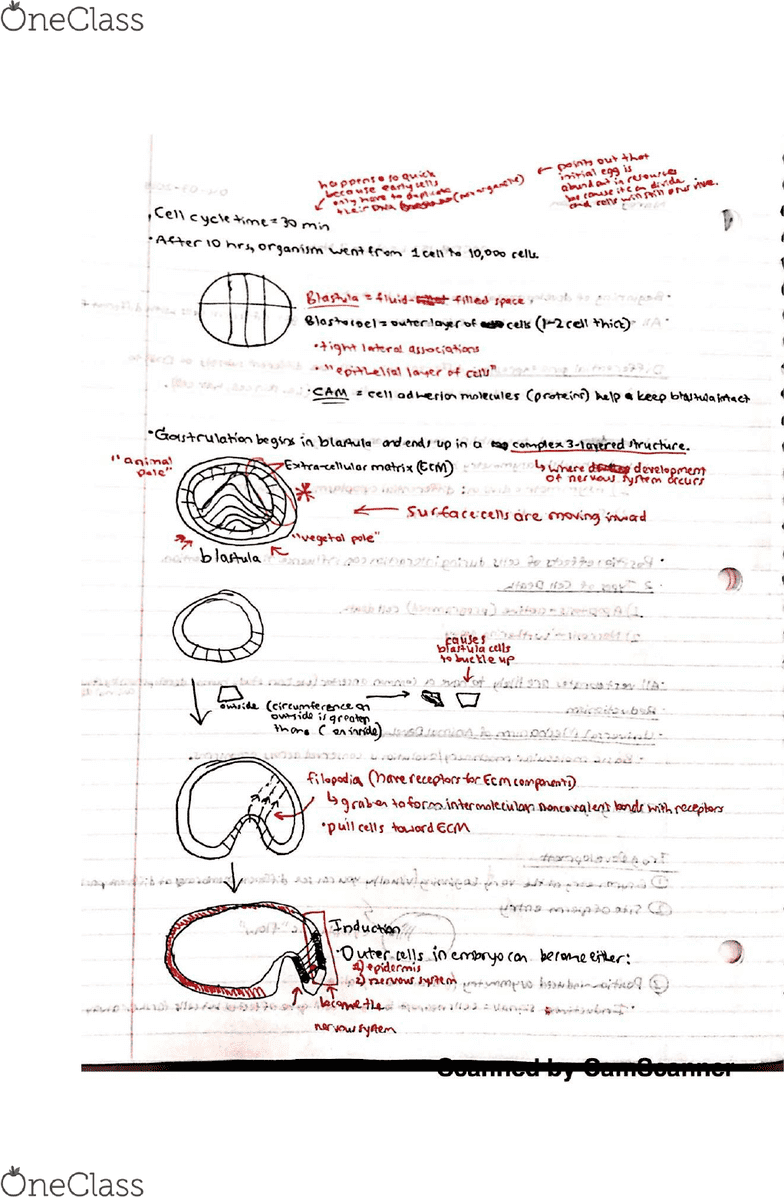 OneClass
happens so quick
because early cells
only have to duplicate
their DNA
points out that
initial egg is
abundant in resources
because it can divide
and cells will still survive.
Cell cycle time = 30 min
• After 10 hrs, organism went from 1 cell to 10,000 cells.
Blastula = fluid- filled space
Blastocoel = outer layer of cells (1-2 cell thick)
• tight lateral associations
• "epithelial layer of cells"
• CAM = cell adhesion molecules (proteins) help keep blastula intact
• Gastrulation begins in blastula and ends up in a complex 3-layered structure.
"animal
pole"
Extra-cellular matrix (ECM)
↳ where development
of nervous system occurs
← surface cells are moving inward
"vegetal pole"
blastula
causes
blastula cells
to buckle up
outside (circumference on
outside is greater
than on inside)
filopodia (have receptors for ECM components)
↳ grab on to form intermolecular noncovalent bonds with receptors
• pull cells toward ECM
Induction
• Outer cells in embryo can become either:
1) epidermis
2) nervous system
become the
nervous system
Scanned by CamScanner
OneClass